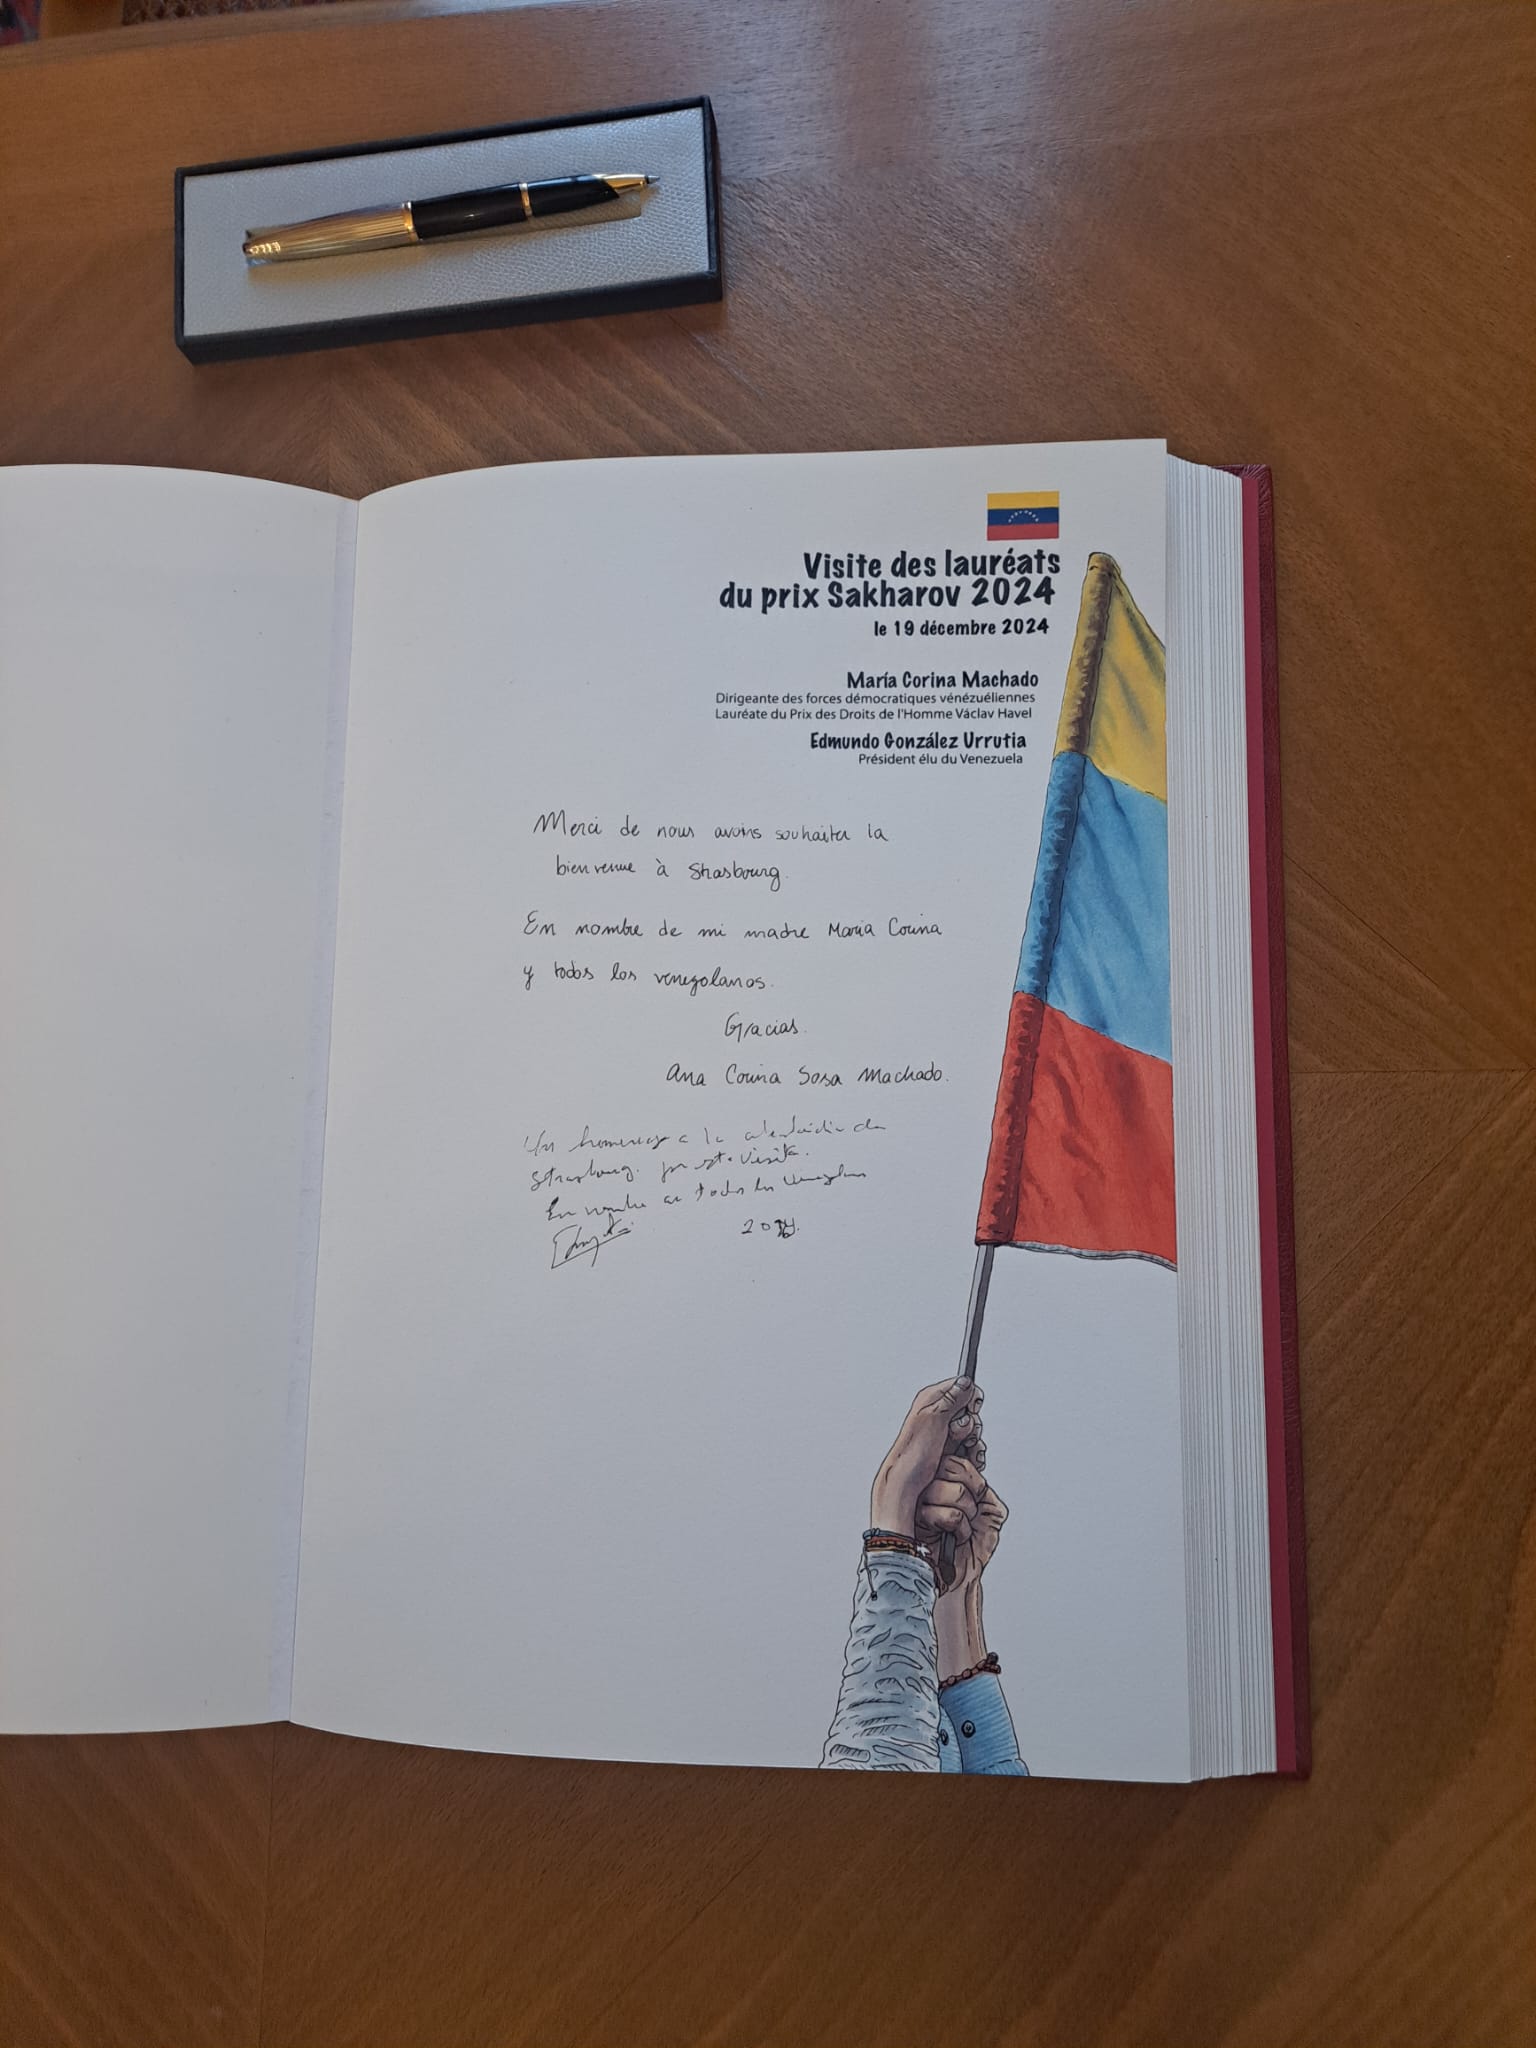 Visite des lauréats
du prix Sakharov 2024
le 19 décembre 2024
María Corina Machado
Dirigeante des forces démocratiques vénézuéliennes
Lauréate du Prix des Droits de l'Homme Václav Havel
Edmundo González Urrutia
Président élu du Venezuela
Merci de nous avoirs souhaiter la
bienvenue à Strasbourg.
En nombre de mi madre Maria Corina
y todos los venezolanos.
Gracias.
Ana Corina Sosa Machado.
Un homenaje a la de
Strasbourg. por esta visita.
En nombre de todos los venezolanos